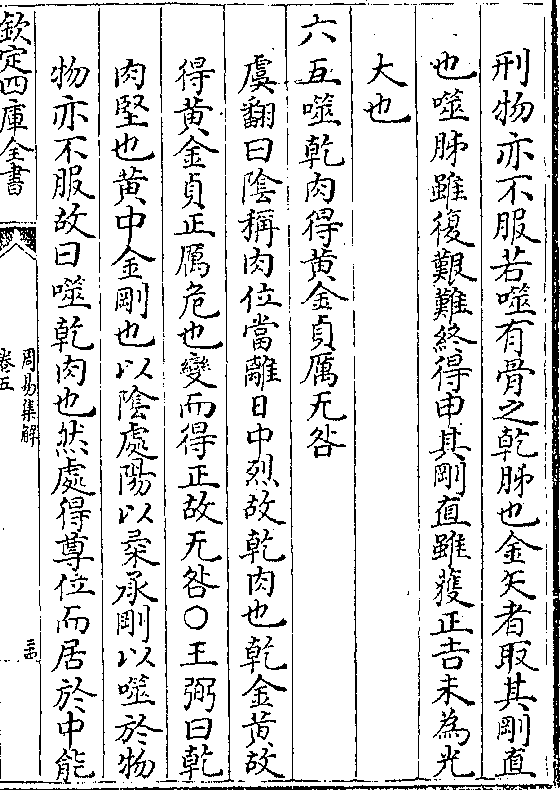 刑物亦不服若噬有骨之乾胏也金矢者取其剛直
也噬胏雖復艱難終得申其剛直雖獲正吉未為光
大也
六五噬乾肉得黄金貞厲无咎
虞翻曰陰稱肉位當離日中烈故乾肉也乾金黄故
得黄金貞正厲危也變而得正故无咎〇王弼曰乾
肉堅也黄中金剛也以陰處陽以柔承剛以噬於物
物亦不服故曰噬乾肉也然處得尊位而居於中能
欽定四庫全書
周易集解
卷五